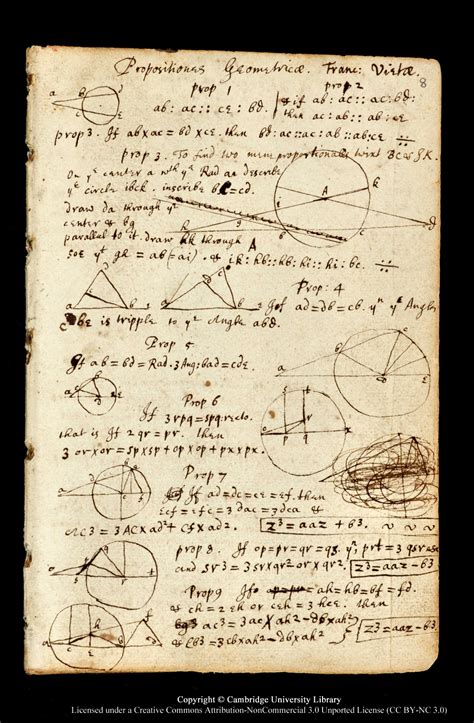 Propositiones Geometricæ. Franc: Vietæ.
8
prop 1
prop 2
ab: ac :: cE : bd.
if ab: ac :: ac: bd:
then ac: ab :: ab: cE
prop 3. If ab×ac = bd×cE. then bd: ac::ac: ab ::ab:cE ∺
prop 3. To find two mean proportionalls twixt BC & GK.
On yᵉ center a wᵗʰ yᵉ Rad an describe
yᵉ circle ibck. inscribe bc=cd.
draw da through yᵉ
center & bg
parallel to it. draw hk through
soe yᵗ gh = ab (=ai). & ik: hb::hb: hi :: hi: bc. ∺
Prop: 4
If ad=db=cb. yⁿ yᵉ Angle
cbE is tripple to yᵉ Angle abd.
Prop 5
If ab = bd = Rad. 3 Ang: bad = cdE.
Prop 6
If 3 rpq = spq: recto.
that is If 2 qr = pr. then
3 or×or = sp×sp + op×op + px×px.
Prop 7
If ad=dc=cE=Ef. then
Ecf = Efc = 3 dac = 3dca &
AC3 = 3AC×ad² + Cf×ad². z3 = aaz + b3.
prop 8. If op=pr=qr=qs. yⁿ, prt = 3 qsr
and sr3 = 3sr×qr² or x×qr². z3=aaz - b3
Prop 9 If ah=hb=bf = fd.
& ch = 2 Eh or cEh = 3 hcE. Then
ac3 = 3ac×ah² - db×ah²
& Cb3 = 3cb×ah² - db×ah² z3=aaz - b3.
Copyright © Cambridge University Library
Licensed under a Creative Commons Attribution-NonCommercial 3.0 Unported License (CC BY-NC 3.0)